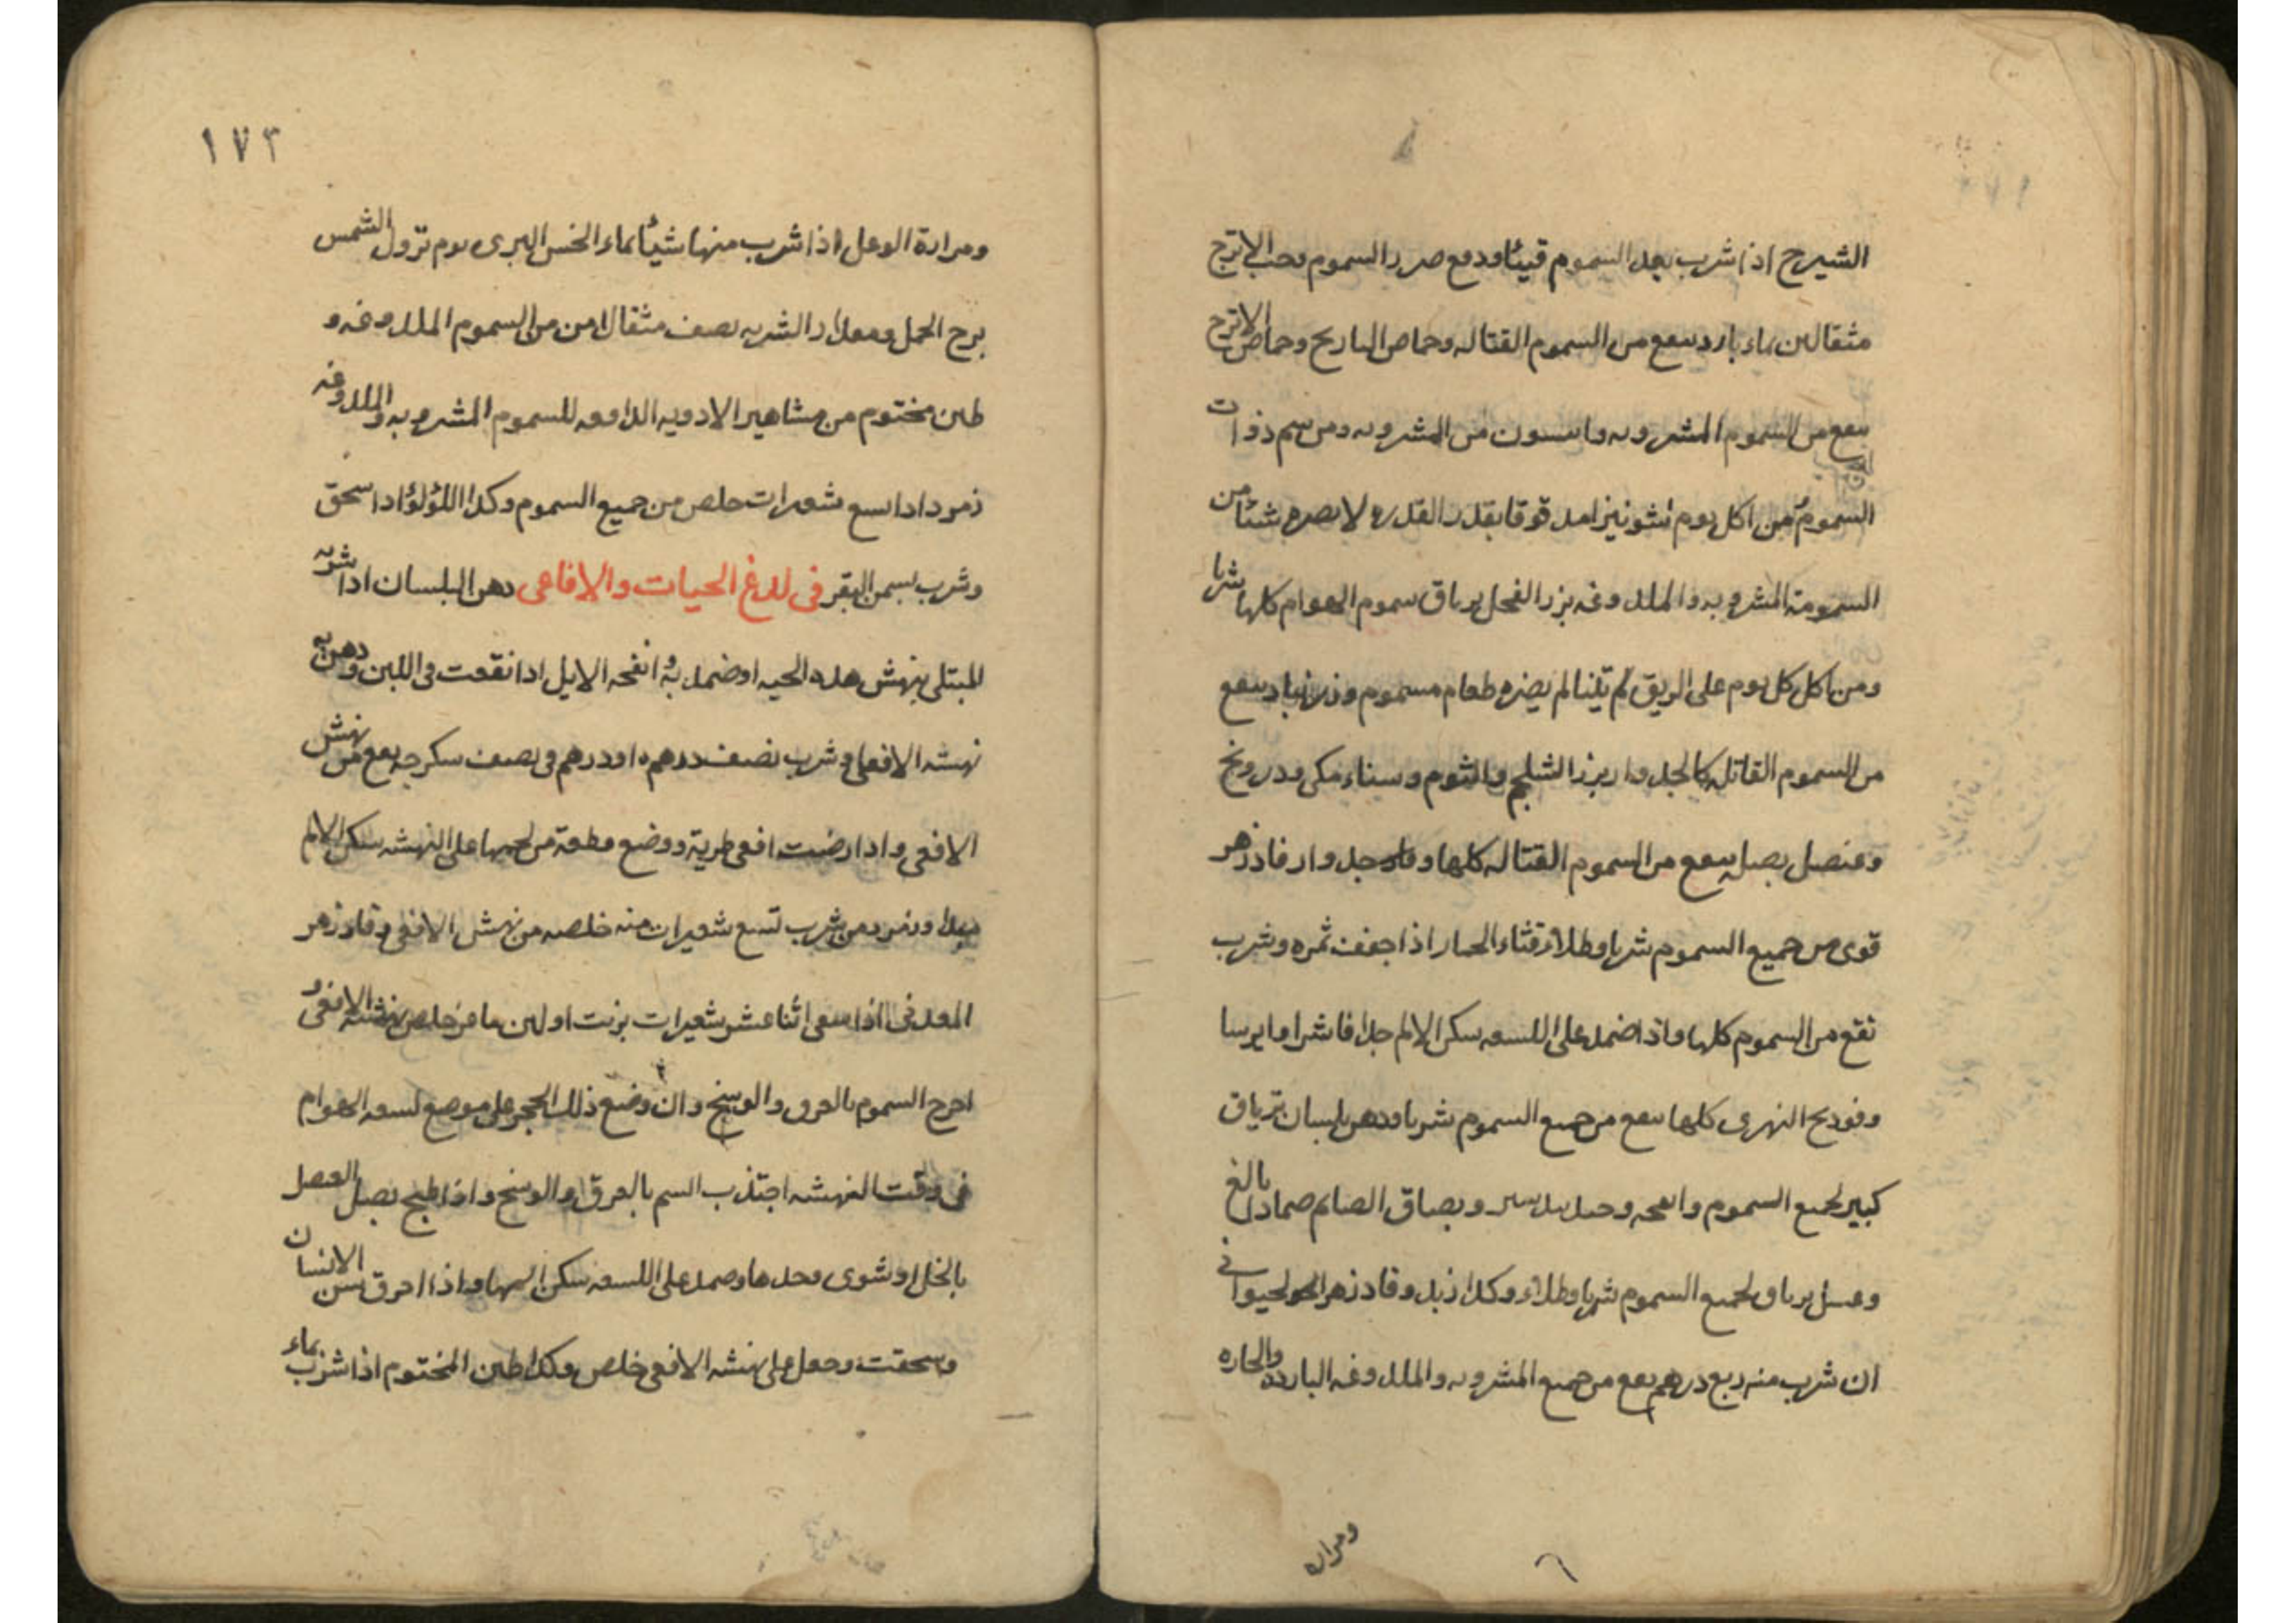 الشيرج اذا شرب بعد السموم قيئا ودفع ضرر السموم وحب الاترج
مثقالين بماء بارد ينفع من السموم القتاله وحماض النارنج وحماض الاترج
ينفع من السموم المشروبه وانيسون من المشروبه ومن سم ذوات
السموم من اكل يوم شونيز بقدر القدره لا يضره شيئا من
السمومة المشروبه والملدوغه بزر الفجل ترياق سموم الهوام كلها شربا
ومن اكل كل يوم على الريق تينا لم يضره طعام مسموم وزرنباد ينفع
من السموم القاتله كالجدوار بزر الشلجم والثوم وسناء مكى ودرونج
وعنصل بصله ينفع من السموم القتاله كلها جدوار فادزهر
قوى من جميع السموم شربا وطلاء قثاء الحمار اذا جفف ثمره وشرب
نفع من السموم كلها واذا ضمد على اللسعه سكن الالم جدا فاشرا وايرسا
وفودنج النهرى كلها ينفع من جميع السموم شربا ودهن بلسان ترياق
كبير لجميع السموم وانفحه وبصاق الصايم ضماد بالغ
وعسل ترياق لجميع السموم شربا وطلاء وكذا زبد وفادزهر الحيوانى
ان شرب منه ربع درهم نفع من جميع المشروبه والملدوغه البارده والحاره
ومراره
١٧٣
ومرارة الوعل اذا شرب منها شيئا بماء الخس البرى يوم نزول الشمس
برج الحمل ومقدار الشربه نصف مثقال امن من السموم الملدوغه و
طين مختوم من مشاهير الادويه الدافعه للسموم المشروبه والملدوغه
زمرد اذا شعيرات خلص من جميع السموم وكذا اللؤلؤ اذا سحق
وشرب بسمن البقر فى للدغ الحيات والافاعى دهن البلسان اذا شربه
المبتلى بنهش هذه الحيه او ضمد به وانفحه الايل اذا نقعت فى اللبن ودهن به
نهشه الافعى وشرب نصف درهم او درهم فى نصف سكرجه نفع من نهش
الافعى واذا رضت افعى طرية ووضع قطعة من لحمها على النهشه سكن الالم
وزمرد من شرب تسع شعيرات منه خلصه من نهش الافعى وفادزهر
المعدنى اذا سقى اثنا عشر شعيرات بزيت او لبن ماعز خلص نهشه الافعى و
اخرج السموم بالعرق والوسخ وان وضع ذلك الحجر على موضع لسعه الهوام
فى وقت النهشه اجتذب السم بالعرق والوسخ واذا طبخ بصل العصل
بالخل او شوى وحدها وضمد على اللسعه سكن المها واذا احرق سن الانسان
وسحقت وجعل على نهشه الافعى خلص وكذا طين المختوم اذا شرب بماء